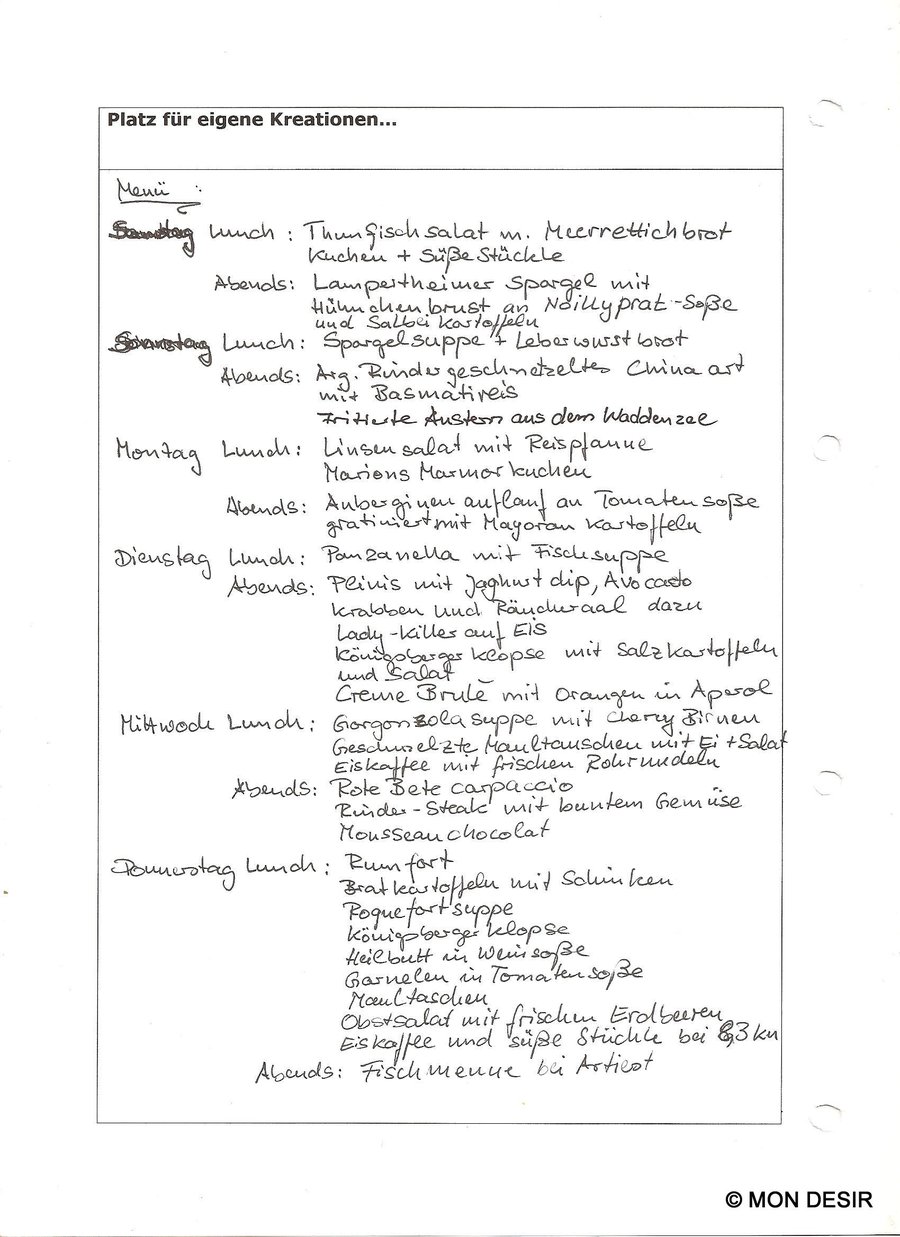 Platz für eigene Kreationen...
Menü :
Samstag Lunch : Thunfischsalat m. Meerrettichbrot
Kuchen + Süße Stückle
Abends: Lampertheimer Spargel mit
Hühnchenbrust an Noillyprat-Soße
und Salbei Kartoffeln
Sonntag Lunch: Spargelsuppe + Leberwurstbrot
Abends: Arg. Rindergeschnetzeltes China art
mit Basmatireis
Fritierte Austern aus dem Waddenzee
Montag Lunch: Linsensalat mit Reispfanne
Marions Marmorkuchen
Abends: Auberginenauflauf an Tomatensoße
gratiniert mit Mayoran Kartoffeln
Dienstag Lunch: Panzanella mit Fischsuppe
Abends: Plinis mit Joghurtdip, Avocado
Krabben und Räucheraal dazu
Lady-Killer auf Eis
Königsberger Klopse mit Salzkartoffeln
und Salat
Creme Brulé mit Orangen in Aperol
Mittwoch Lunch: Gorgonzolasuppe mit Cherry Birnen
Geschmelzte Maultauschen mit Ei + Salat
Eiskaffee mit frischen Rohrnudeln
Abends: Rote Bete carpaccio
Rinder-Steak mit buntem Gemüse
Mousseauchocolat
Donnerstag Lunch: Rumfort
Bratkartoffeln mit Schinken
Roquefortsuppe
Königsberger Klopse
Heilbutt in Weinsoße
Garnelen in Tomatensoße
Maultaschen
Obstsalat mit frischen Erdbeeren
Eiskaffee und süße Stückle bei 8,3 kn
Abends: Fischmenue bei Artiest
© MON DESIR